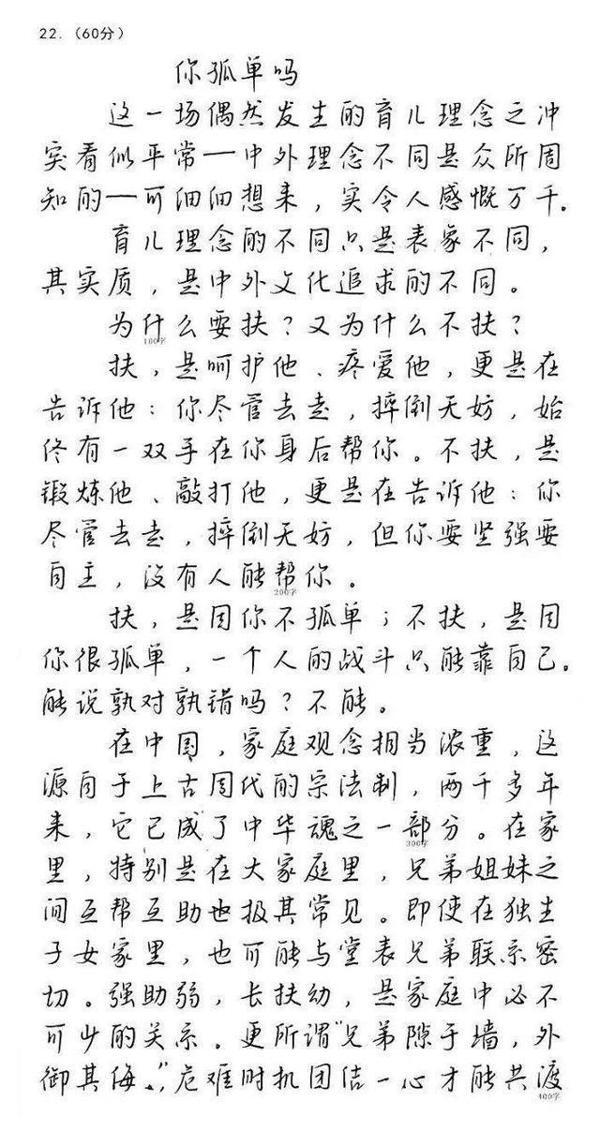 22.（60分）
你孤单吗
这一场偶然发生的育儿理念之冲
突看似平常——中外理念不同是众所周
知的——可细细想来，实令人感慨万千。
育儿理念的不同只是表象不同，
其实质，是中外文化追求的不同。
为什么要扶？又为什么不扶？
100字
扶，是呵护他、疼爱他，更是在
告诉他：你尽管去走，摔倒无妨，始
终有一双手在你身后帮你。不扶，是
锻炼他、敲打他，更是在告诉他：你
尽管去走，摔倒无妨，但你要坚强要
自主，没有人能帮你。
200字
扶，是因你不孤单；不扶，是因
你很孤单，一个人的战斗只能靠自己。
能说孰对孰错吗？不能。
在中国，家庭观念相当浓重，这
源自于上古周代的宗法制，两千多年
来，它已成了中华魂之一部分。在家
300字
里，特别是在大家庭里，兄弟姐妹之
间互帮互助也极其常见。即使在独生
子女家里，也可能与堂表兄弟联系密
切。强助弱，长扶幼，是家庭中必不
可少的关系。更所谓“兄弟隙于墙，外
御其侮”，危难时机团结一心才能共渡
400字